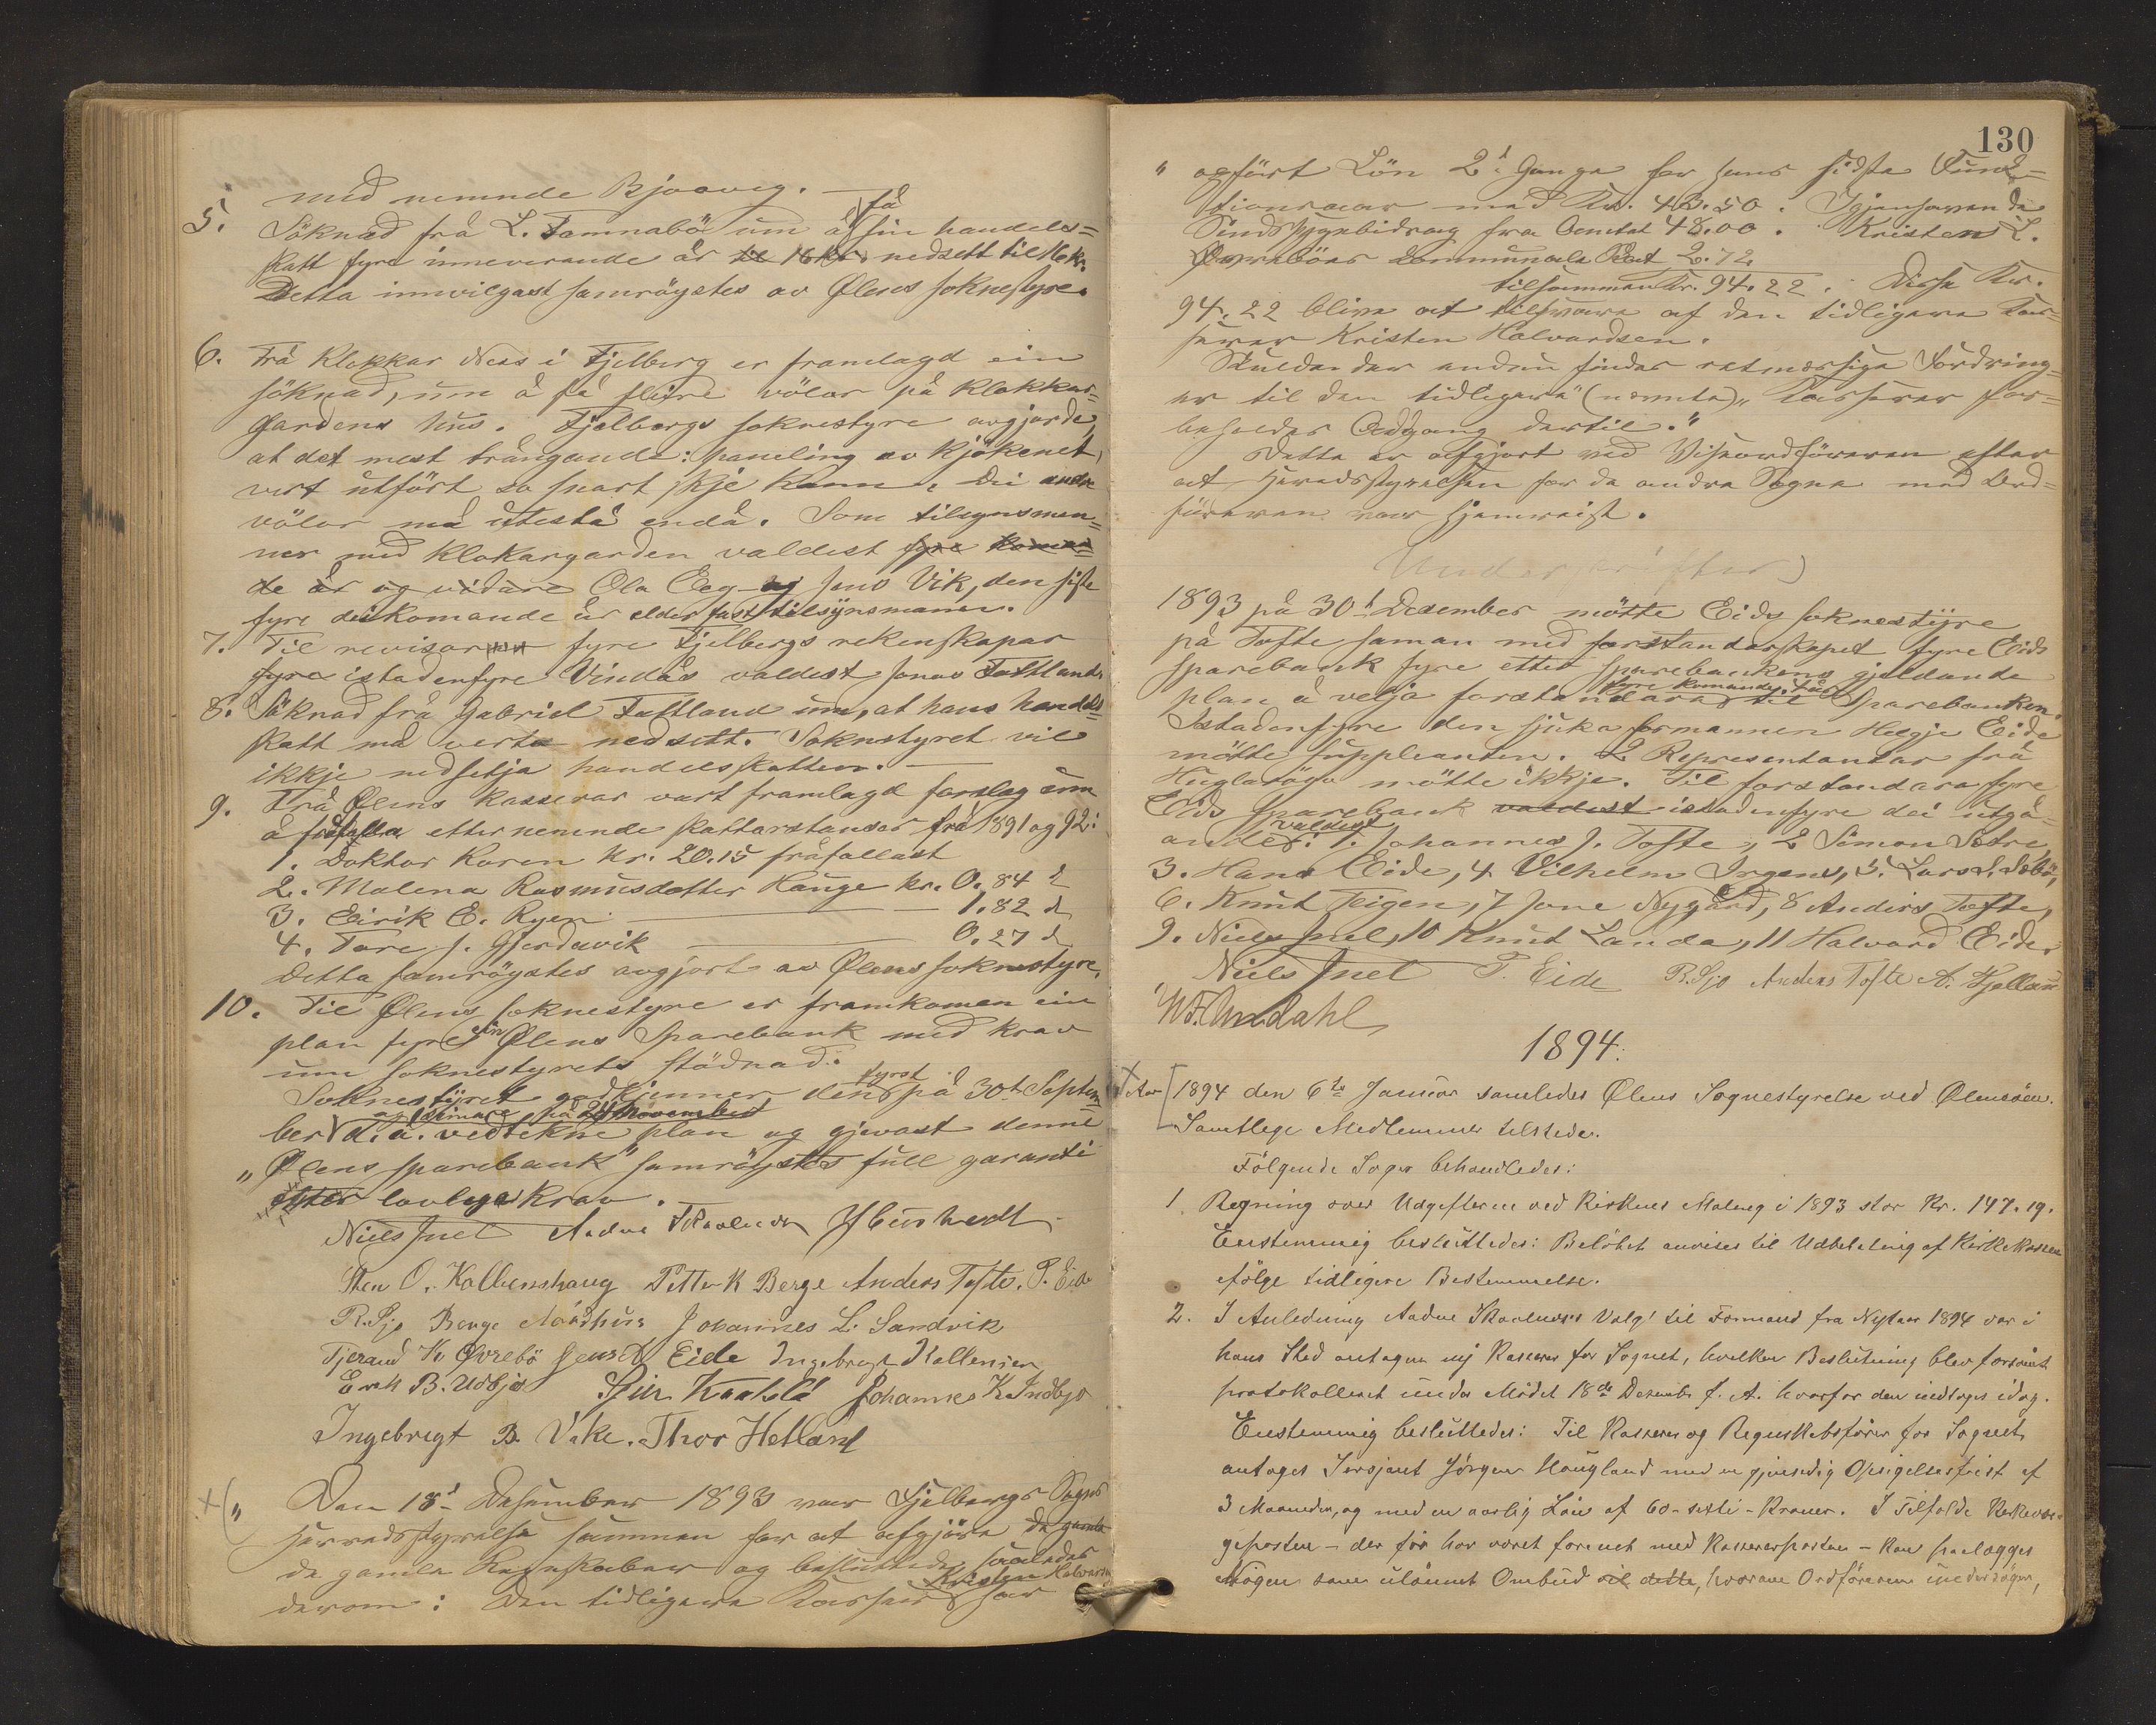 med nemnde Bjoaveg.
5. Söknad frå L. Tamnabö um å få sin handels=
skatt fyre inneverande år til 16 kr. nedsett til 16 kr.
Detta innvilgast samröystes av Ølens soknestyre.
6. Frå Klokkar Ness i Fjelberg er framlagd ein
söknad, um å få fleire völer på Klokkar=
gardens hus. Fjelbergs soknestyre avgjorde,
at det mest trångande: paneling av kjökenet,
vert utfört so snart skje kann. Dei andre
völer må utestå endå. Som tilsynsmen=
ner med Klokargarden valdest fyre koman=
de år og vidare Ola Eeg og Jens Vik, den siste
fyre dei komande år elder fast tilsynsmann.
7. Til revisor fyre Fjelbergs rekenskapar
fyre istadenfyre Vindås valdest Jonas Tustland.
8. Söknad frå Gabriel Tustland um, at hans handels=
skatt må verta nedsett. Soknstyret vil
ikkje nedsetja handelsskatten.
9. Frå Ølens Kasserar vart framlagd forslag um
å fråfalla etter nemnde skattarstanser frå 1891 og 92:
1. Doktor Koren kr. 20.15 fråfallast
2. Malena Rasmusdatter Hauge kr. 0.84 d
3. Eirik E. Ryen 1.82 d
4. Tore J. Gjerdevik 0.27 d
Detta samröystes avgjort av Ølens soknestyre.
10. Til Ølens soknestyre er framkomen ein
plan fyre ein Ølens Sparebank med krav
um soknestyrets stödnad.
Soknestyret godkjenner den fyrst på 30te Septem=
ber og seinare på 28 November
d. å. vedtekne plan og gjevast denne
"Ølens sparebank" samröystes full garanti
etter lovlege krav.
Niels Juel Aadne Skaaluren H Bernhardt
Sten O. Kolbenshaug Petter K Berge Anders Tofte. P. Eide
R. Sjo Benge Nordhus Johannes L. Sandvik
Tjerand K. Øvrebö Jens A Eide Ingebregt Kallensen
Erik B. Udbjo Johannes K. Indbjo
Ingebregt B. Vike. Thor Hetland
" Den 18d Desember 1893 var Fjelbergs Sogns
Herredsstyrelse sammen for at afgjöre de gamle
de gamle Regnskaber og besluttede saaledes
derom: Den tidligere Kasserer Kristen Halvorsen har
130
" opfört Lön 2d Gange for hans sidste Funk=
tionsaar med Kr. 43.50. Igjenhavende
Sindssygebidrag fra Amtet 48.00. Kristen L.
Øvrebøes kommunale Skat 2.72.
tilsammen Kr. 94.22. Disse Kr.
94.22 blive at tilsvare af den tidligere Kas=
serer Kristen Halvardsen.
Skulde der enden findes retmessige Fordring=
er til den tidligere (nevnte) Kasserer for=
beholdes Adgang dertil."
Dette er afgjort ved Viseordföreren efter
at Herredsstyrelsen for de andre Sogne med Ord=
föreren var hjemreist.
Underskrifter)
1893 på 30d Desember mötte Eids soknestyre
på Tofte saman med forstandarskapet fyre Eids
sparebank fyre etter sparebankens gjeldande
plan å velja forstandarar fyre komande til Sparebanken.
Istadenfyre den sjuke formannen Helgje Eide
mötte suppleanten. 2 Representantar frå
Huglaröyo mötte ikkje. Til forstandarar fyre
Eids sparebank valdest istadenfyre dei utgå=
ande valdest: 1. Johannes J. Tofte, 2 Simon Sætre
3. Hans Eide, 4. Vilhelm Irgens, 5. Lars L. Sebö,
6. Knut Teigen, 7 Jone Nygård, 8 Anders Tofte,
9. Niels Juel, 10 Knut Landa, 11 Halvard Eide.
Niels Juel P. Eide R. Sjo Anders Tofte
1894.
1894 den 6te Januar samledes Ølens Sognestyrelse ved Ølensöen.
Samtlege Medlemmer tilstede.
Fölgende Sager behandledes:
1. Regning over Udgifterne ved Kirkens Maling i 1893 stor Kr. 147.19.
Enstemmig besluttedes: Belöbet anvises til Udbetaling af Kirkekassen
ifölge tidligere Bestemmelse.
2. I Anledning Aadne Skaalurens Valg til Formand fra Nytaar 1894 var i
hans Sted antagen ny Kasserer for Sognet, hvilken Beslutning blev forsömt
protokolleret under Mödet 18de Desember f. A. hvorfor den indtages idag.
Enstemmig besluttedes: Til Kasserer og Regnskabsförer for Sognet
antages Sersjant Jörgen Haugland med en gjensidig Opsigelsesfrist af
3 Maaneder, og med en aarlig Lön af 60 - seksti - Kroner. I Tilfælde Kirkevær=
geposten - der för har været forenet med Kassererposten - kan paalægges
Nogen som ulönnet Ombud til dette, hvorom Ordföreren undersöger,